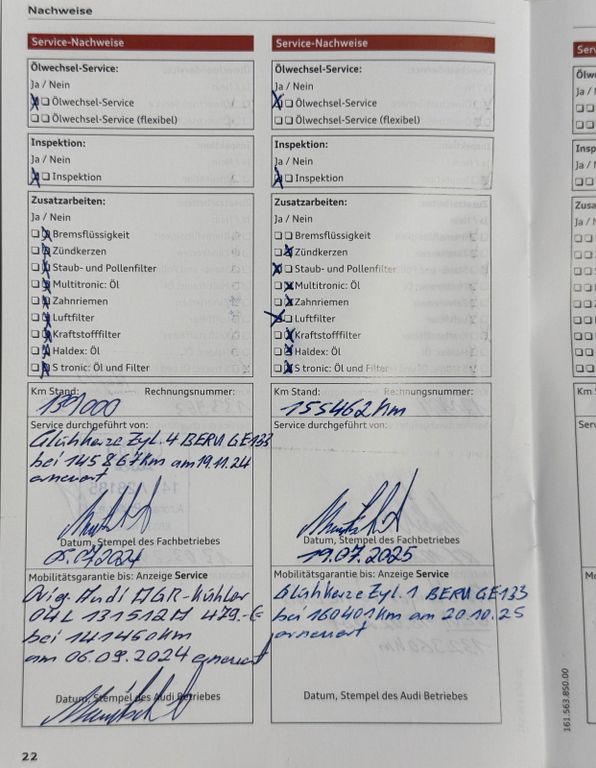 Nachweise
Service-Nachweise
Ölwechsel-Service:
Ja / Nein
Ölwechsel-Service
Ölwechsel-Service (flexibel)
Inspektion:
Ja / Nein
Inspektion
Zusatzarbeiten:
Ja / Nein
Bremsflüssigkeit
Zündkerzen
Staub- und Pollenfilter
Multitronic: Öl
Zahnriemen
Luftfilter
Kraftstofffilter
Haldex: Öl
S tronic: Öl und Filter
Km Stand: Rechnungsnummer:
139000
Service durchgeführt von:
Glühkerze Zyl. 4 BERU GE133
bei 145867km am 19.11.24
erneuert
Datum, Stempel des Fachbetriebes
05.07.2024
Mobilitätsgarantie bis: Anzeige Service
Orig. Audi AGR-Kühler
04L 131512 479,-€
bei 141460km
am 06.09.2024 erneuert
Datum, Stempel des Audi Betriebes
22
Service-Nachweise
Ölwechsel-Service:
Ja / Nein
Ölwechsel-Service
Ölwechsel-Service (flexibel)
Inspektion:
Ja / Nein
Inspektion
Zusatzarbeiten:
Ja / Nein
Bremsflüssigkeit
Zündkerzen
Staub- und Pollenfilter
Multitronic: Öl
Zahnriemen
Luftfilter
Kraftstofffilter
Haldex: Öl
S tronic: Öl und Filter
Km Stand: Rechnungsnummer:
155462km
Service durchgeführt von:
Datum, Stempel des Fachbetriebes
19.07.2025
Mobilitätsgarantie bis: Anzeige Service
Glühkerze Zyl. 1 BERU GE133
bei 160401km am 20.10.25
erneuert
Datum, Stempel des Audi Betriebes
161.563.850.00